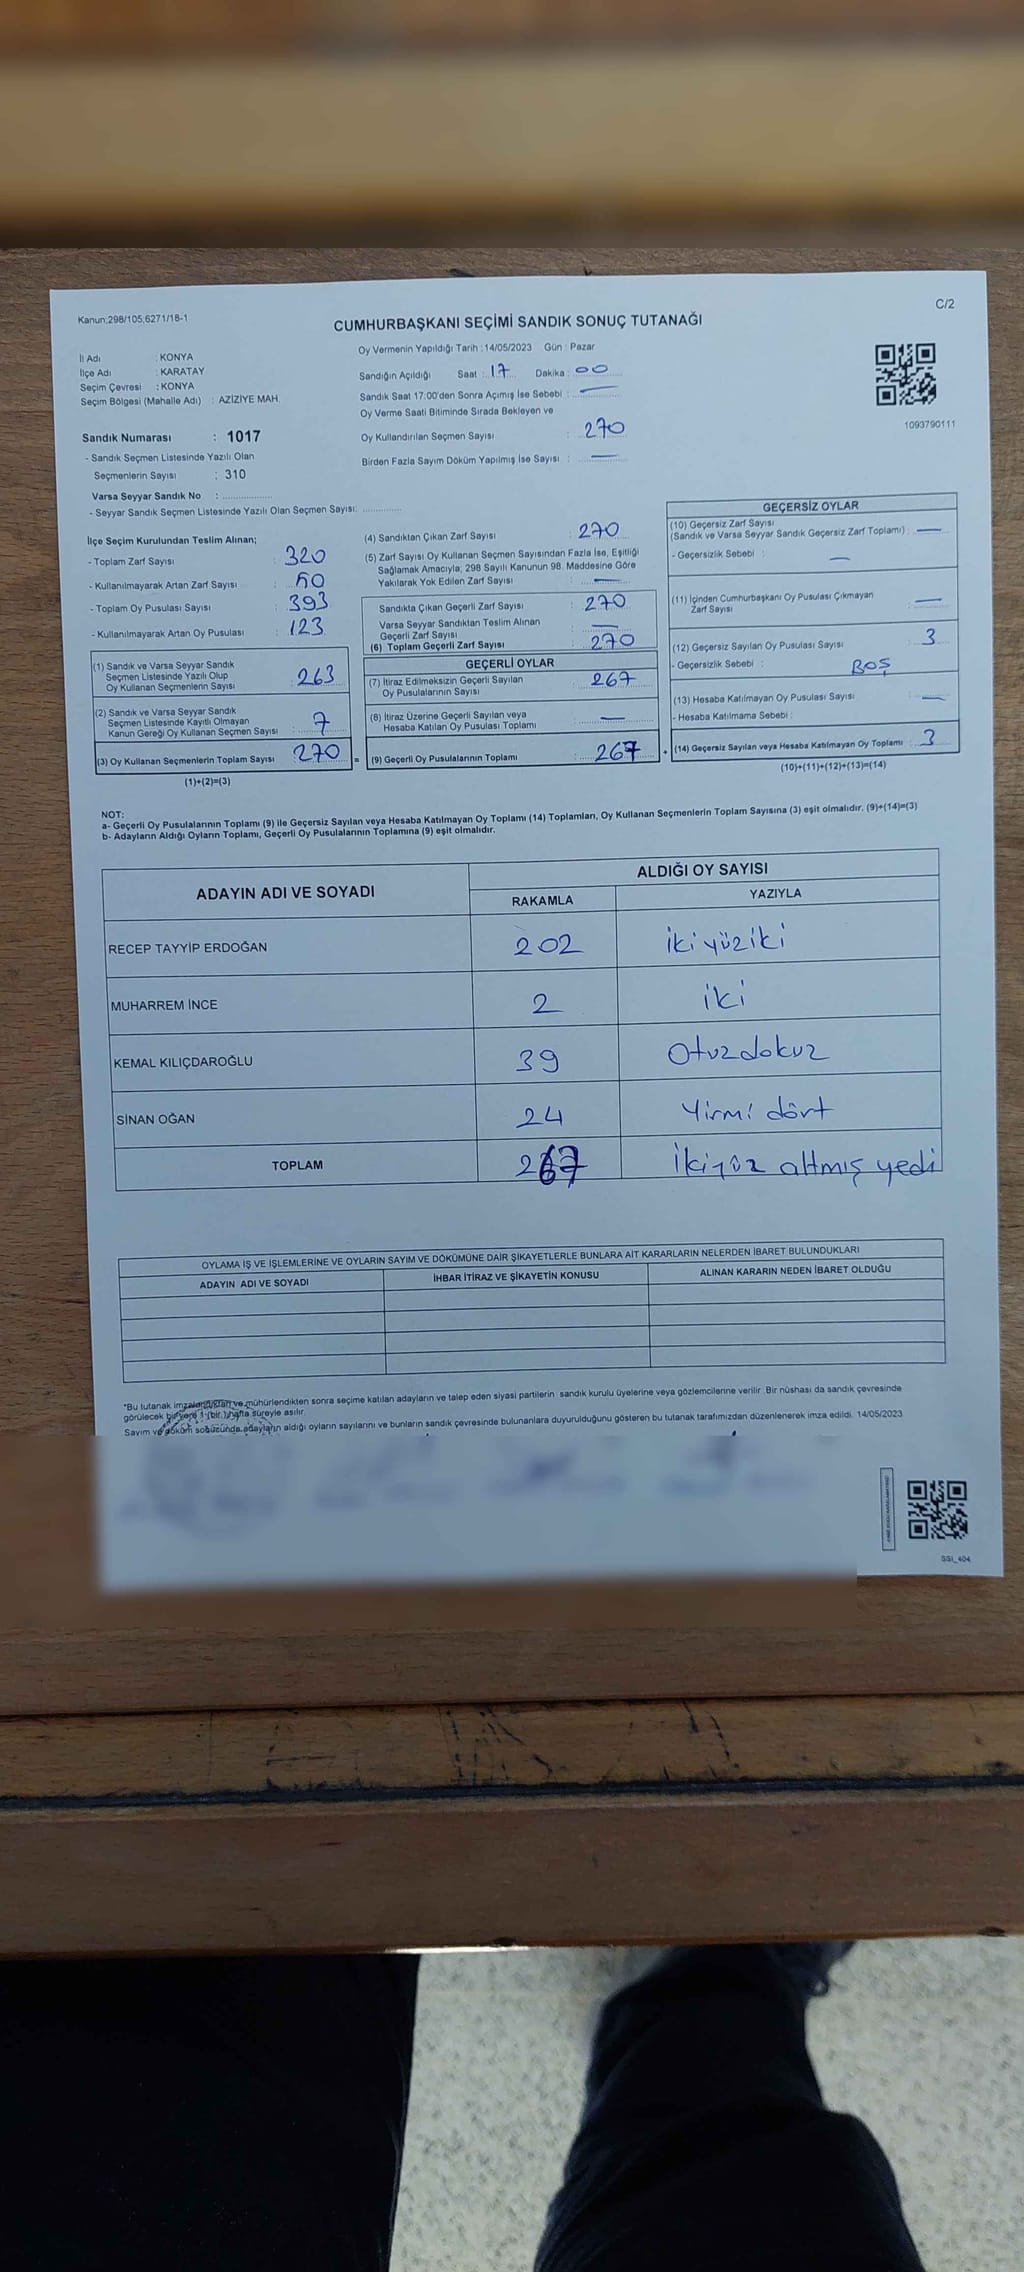 Kanun;298/105;6271/18-1
C/2
CUMHURBAŞKANI SEÇİMİ SANDIK SONUÇ TUTANAĞI
İl Adı : KONYA
İlçe Adı : KARATAY
Seçim Çevresi : KONYA
Seçim Bölgesi (Mahalle Adı) : AZİZİYE MAH.
Sandık Numarası : 1017
- Sandık Seçmen Listesinde Yazılı Olan
Seçmenlerin Sayısı : 310
Varsa Seyyar Sandık No :
- Seyyar Sandık Seçmen Listesinde Yazılı Olan Seçmen Sayısı:
Oy Vermenin Yapıldığı Tarih :14/05/2023 Gün : Pazar
Sandığın Açıldığı Saat : 17 Dakika : 00
Sandık Saat 17:00'den Sonra Açımış İse Sebebi : —
Oy Verme Saati Bitiminde Sırada Bekleyen ve
Oy Kullandırılan Seçmen Sayısı : 270
Birden Fazla Sayım Döküm Yapılmış İse Sayısı : —
1093790111
İlçe Seçim Kurulundan Teslim Alınan;
- Toplam Zarf Sayısı : 320
- Kullanılmayarak Artan Zarf Sayısı : 50
- Toplam Oy Pusulası Sayısı : 393
- Kullanılmayarak Artan Oy Pusulası : 123
(1) Sandık ve Varsa Seyyar Sandık
Seçmen Listesinde Yazılı Olup
Oy Kullanan Seçmenlerin Sayısı : 263
(2) Sandık ve Varsa Seyyar Sandık
Seçmen Listesinde Kayıtlı Olmayan
Kanun Gereği Oy Kullanan Seçmen Sayısı : 7
(3) Oy Kullanan Seçmenlerin Toplam Sayısı : 270
(1)+(2)=(3)
(4) Sandıktan Çıkan Zarf Sayısı : 270
(5) Zarf Sayısı Oy Kullanan Seçmen Sayısından Fazla İse, Eşitliği
Sağlamak Amacıyla; 298 Sayılı Kanunun 98. Maddesine Göre
Yakılarak Yok Edilen Zarf Sayısı : —
Sandıkta Çıkan Geçerli Zarf Sayısı : 270
Varsa Seyyar Sandıktan Teslim Alınan
Geçerli Zarf Sayısı : —
(6) Toplam Geçerli Zarf Sayısı : 270
GEÇERLİ OYLAR
(7) İtiraz Edilmeksizin Geçerli Sayılan
Oy Pusulalarının Sayısı : 267
(8) İtiraz Üzerine Geçerli Sayılan veya
Hesaba Katılan Oy Pusulası Toplamı : —
= (9) Geçerli Oy Pusulalarının Toplamı : 267
GEÇERSİZ OYLAR
(10) Geçersiz Zarf Sayısı
(Sandık ve Varsa Seyyar Sandık Geçersiz Zarf Toplamı) : —
- Geçersizlik Sebebi : —
(11) İçinden Cumhurbaşkanı Oy Pusulası Çıkmayan
Zarf Sayısı : —
(12) Geçersiz Sayılan Oy Pusulası Sayısı : 3
- Geçersizlik Sebebi : BOŞ
(13) Hesaba Katılmayan Oy Pusulası Sayısı : —
- Hesaba Katılmama Sebebi :
+ (14) Geçersiz Sayılan veya Hesaba Katılmayan Oy Toplamı : 3
(10)+(11)+(12)+(13)=(14)
NOT:
a- Geçerli Oy Pusulalarının Toplamı (9) ile Geçersiz Sayılan veya Hesaba Katılmayan Oy Toplamı (14) Toplamları, Oy Kullanan Seçmenlerin Toplam Sayısına (3) eşit olmalıdır. (9)+(14)=(3)
b- Adayların Aldığı Oyların Toplamı, Geçerli Oy Pusulalarının Toplamına (9) eşit olmalıdır.
ADAYIN ADI VE SOYADI
ALDIĞI OY SAYISI
RAKAMLA YAZIYLA
RECEP TAYYİP ERDOĞAN 202 ikiyüziki
MUHARREM İNCE 2 iki
KEMAL KILIÇDAROĞLU 39 Otuzdokuz
SİNAN OĞAN 24 Yirmi dört
TOPLAM 267 İkiyüz altmış yedi
OYLAMA İŞ VE İŞLEMLERİNE VE OYLARIN SAYIM VE DÖKÜMÜNE DAİR ŞİKAYETLERLE BUNLARA AİT KARARLARIN NELERDEN İBARET BULUNDUKLARI
ADAYIN ADI VE SOYADI İHBAR İTİRAZ VE ŞİKAYETİN KONUSU ALINAN KARARIN NEDEN İBARET OLDUĞU
*Bu tutanak imzalandıktan ve mühürlendikten sonra seçime katılan adayların ve talep eden siyasi partilerin sandık kurulu üyelerine veya gözlemcilerine verilir. Bir nüshası da sandık çevresinde
görülecek bir yere 1 (bir ) hafta süreyle asılır.
Sayım ve döküm sonucunda adayların aldığı oyların sayılarını ve bunların sandık çevresinde bulunanlara duyurulduğunu gösteren bu tutanak tarafımızdan düzenlenerek imza edildi. 14/05/2023
SSI_404